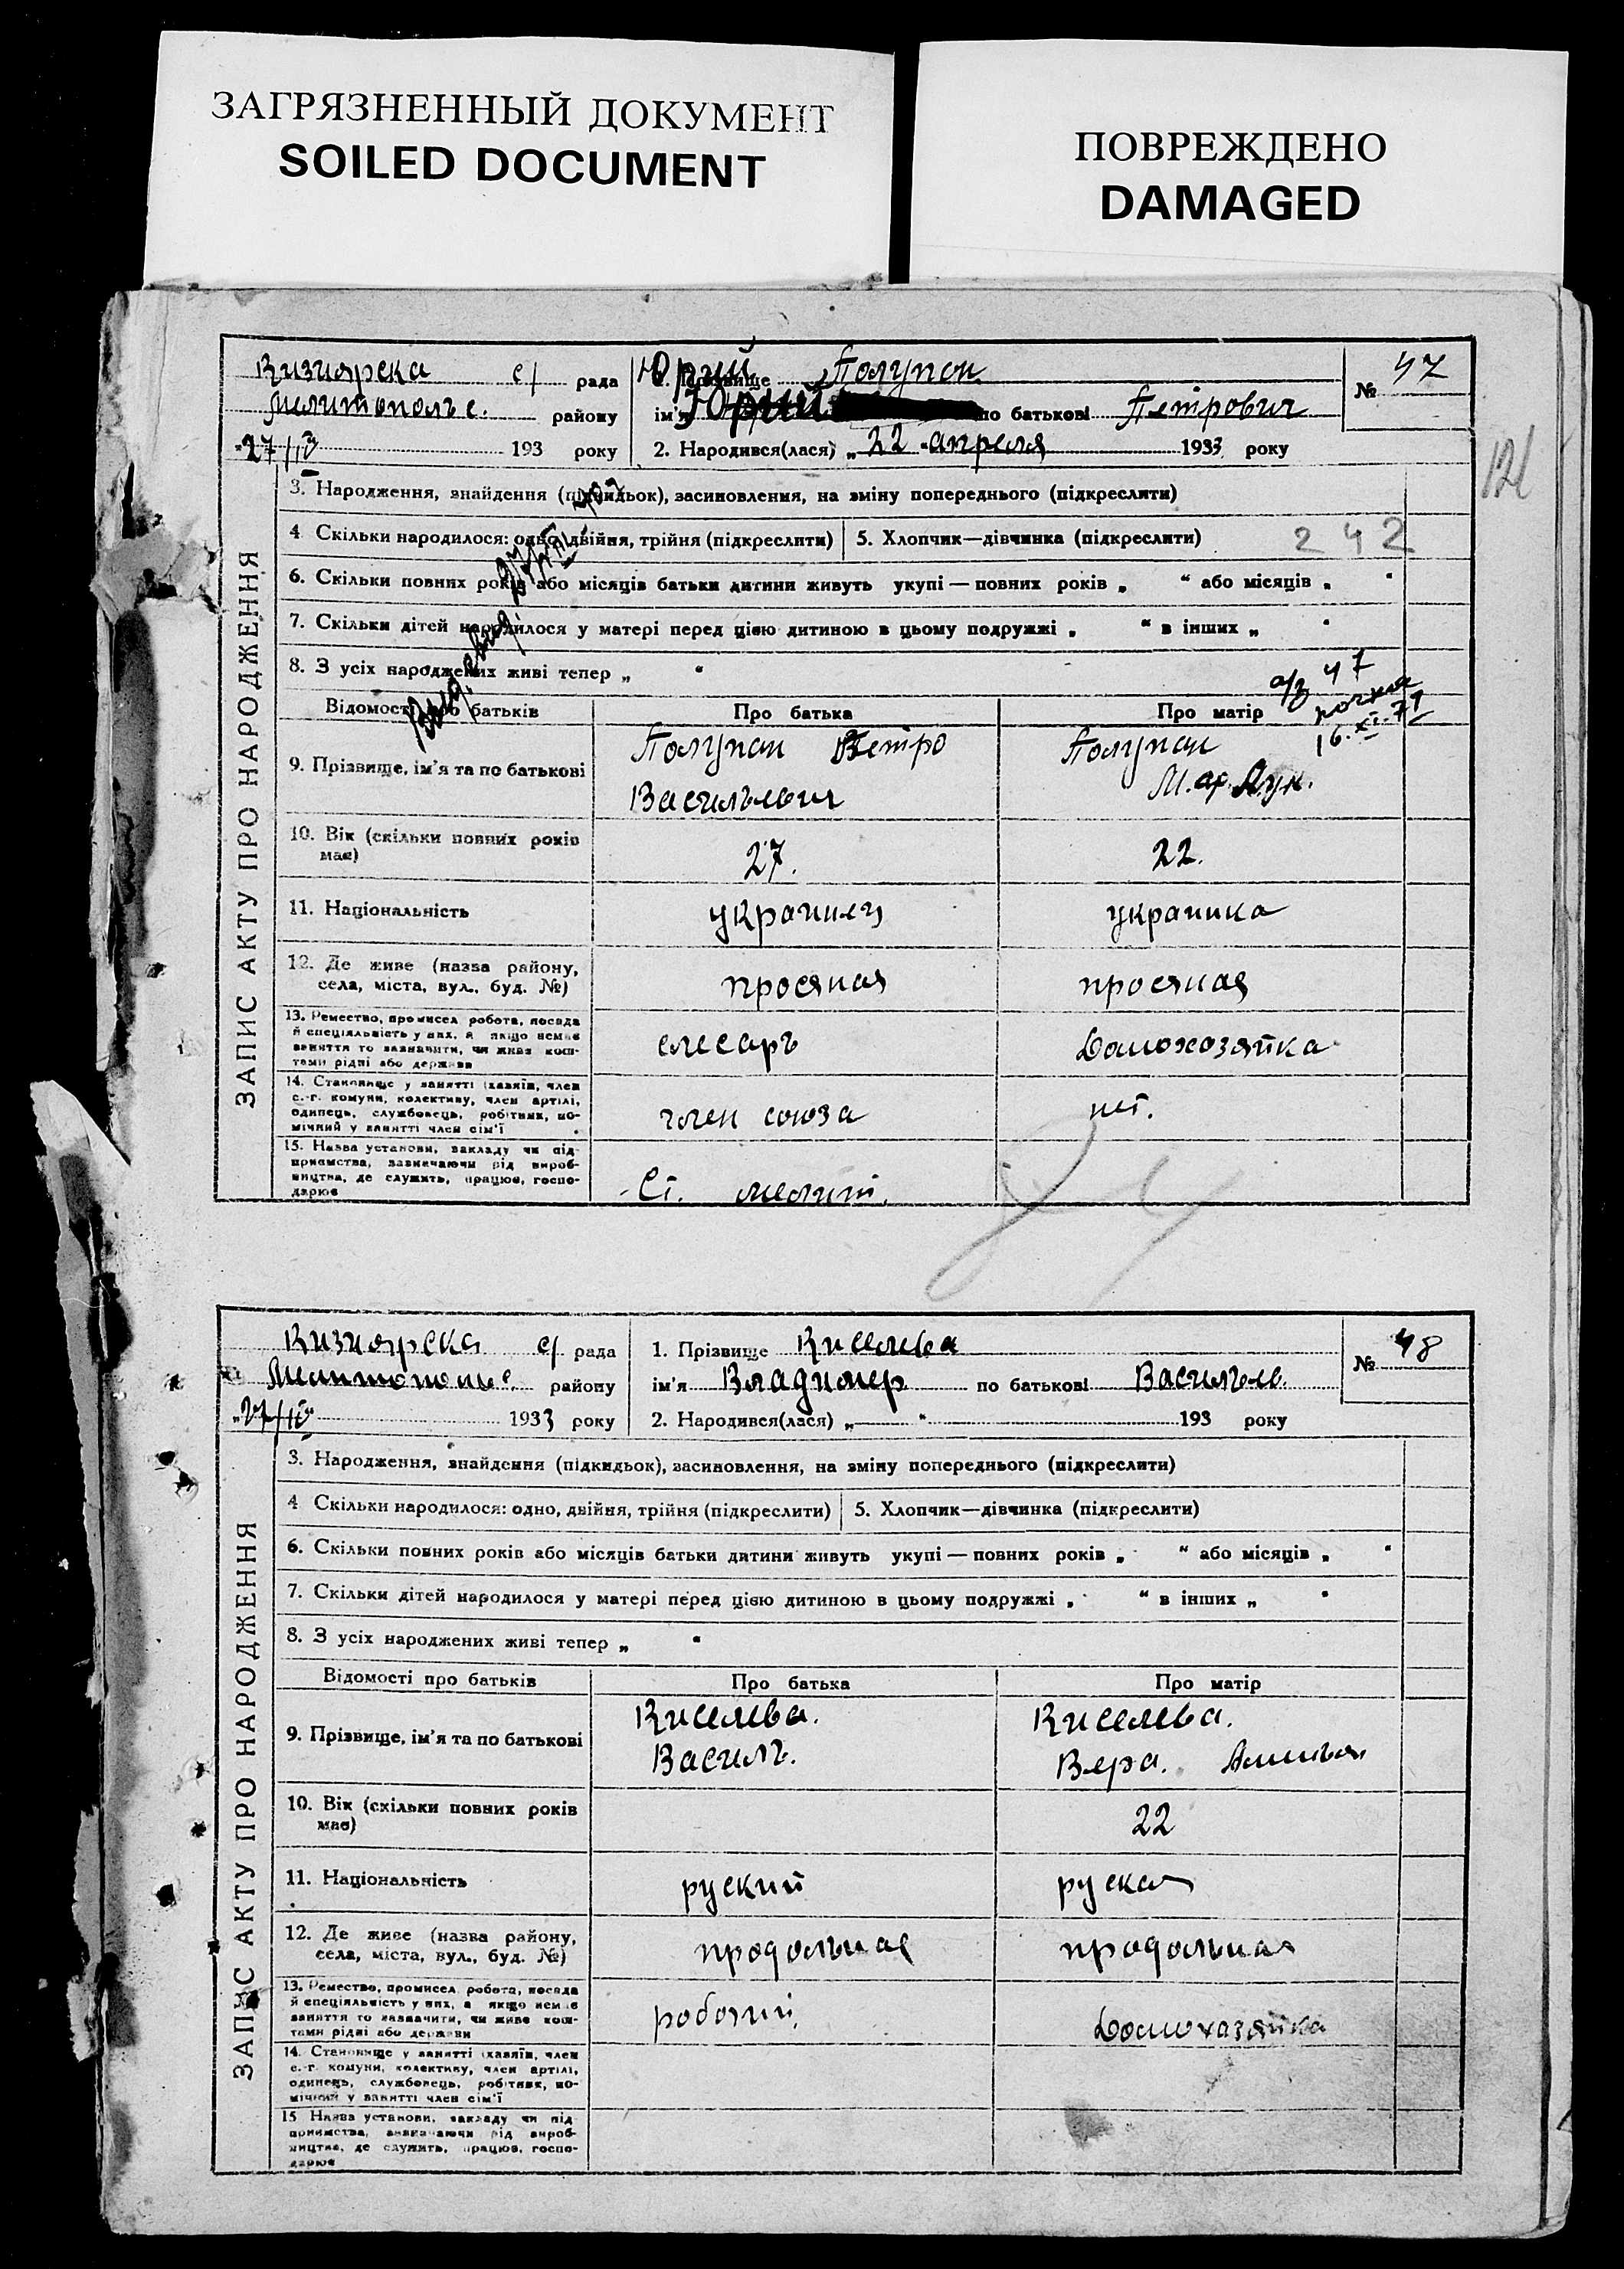 ЗАГРЯЗНЕННЫЙ ДОКУМЕНТ
SOILED DOCUMENT
ПОВРЕЖДЕНО
DAMAGED
121
ЗАПИС АКТУ ПРО НАРОДЖЕННЯ
Кизиярска с/ рада
Мелитопольс. району
"27/IV 193 року
Юрий
1. Прізвище Полупан
ім'я Юрий по батькові Петрович
2. Народився(лася) „22" апреля 1933 року
№ 47
3. Народження, знайдення (підкидьок), засиновлення, на зміну попереднього (підкреслити)
4 Скільки народилося: одно, двійня, трійня (підкреслити) 5. Хлопчик—дівчинка (підкреслити) 242
6. Скільки повних років або місяців батьки дитини живуть укупі — повних років „ " або місяців „ "
7. Скільки дітей народилося у матері перед цією дитиною в цьому подружжі „ " в інших „ "
8. З усіх народжених живі тепер „ "
а/з 47
16.XI.71
Відомості про батьків Про батька Про матір
9. Прізвище, ім'я та по батькові
Полупан Петро
Васильевич
Полупан
Мар. Лук.
10. Вік (скільки повних років має) 27. 22.
11. Національність украинец украинка
12. Де живе (назва району, села, міста, вул., буд. №) просяная просяная
13. Ремество, промисел, робота, посада
й спеціяльність у них, а якщо немає
заняття то зазначити, чи живе кош-
тами рідні або держави
слесарь Домохозяйка
14. Становище у занятті (хазяїн, член
с.-г. комуни, колективу, член артілі,
одинець, службовець, робітник, по-
мічний у занятті член сім'ї
член союза нет.
15. Назва установи, закладу чи під-
приємства, зазначаючи рід вироб-
ництва, де служить, працює, госпо-
дарює
Ст. мелит.
ЗАПИС АКТУ ПРО НАРОДЖЕННЯ
Кизиярска с/ рада
району
"27/IV" 1933 року
1. Прізвище Киселева
ім'я Владимер по батькові Василье.
2. Народився(лася) „ " 193 року
№ 48
3. Народження, знайдення (підкидьок), засиновлення, на зміну попереднього (підкреслити)
4 Скільки народилося: одно, двійня, трійня (підкреслити) 5. Хлопчик—дівчинка (підкреслити)
6. Скільки повних років або місяців батьки дитини живуть укупі — повних років „ " або місяців „ "
7. Скільки дітей народилося у матері перед цією дитиною в цьому подружжі „ " в інших „ "
8. З усіх народжених живі тепер „ "
Відомості про батьків Про батька Про матір
9. Прізвище, ім'я та по батькові
Киселева.
Василь.
Киселева.
Вера.
10. Вік (скільки повних років має) 22
11. Національність руский руская
12. Де живе (назва району, села, міста, вул., буд. №) продольная продольная
13. Ремество, промисел, робота, посада
й спеціяльність у них, а якщо немає
заняття то зазначити, чи живе кош-
тами рідні або держави
робочий, Домохазяйка
14. Становище у занятті (хазяїн, член
с.-г. комуни, колективу, член артілі,
одинець, службовець, робітник, по-
мічний у занятті член сім'ї
15 Назва установи, закладу чи під-
приємства, зазначаючи рід вироб-
ництва, де служить, працює, госпо-
дарює